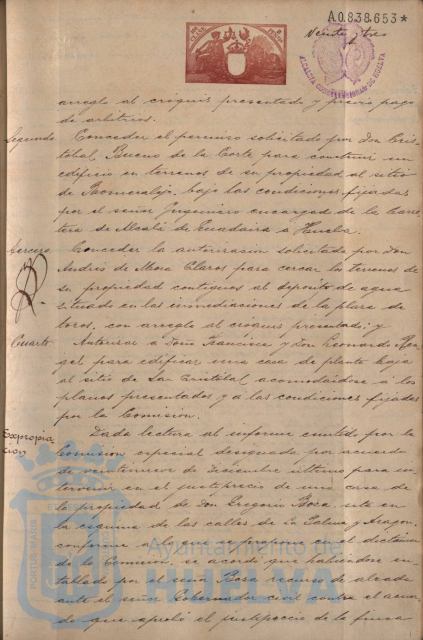 A0.838.653*
Veinte y tres
ALCALDIA CONSTITUCIONAL DE HUELVA
arreglo al cróquis presentado y previo pago
de arbitrios.
Segundo Conceder el permiso solicitado por Don Cris-
tobal Bueno de la Corte para construir un
edificio en terrenos de su propiedad al sitio
de Pasmeralejo bajo las condiciones fijadas
por el señor Ingeniero encargado de la Carre
tera de Alcalá de Guadaira á Huelva.
Tercero Conceder la autorización solicitada por Don
Andrés de Mora Claros para cercar los terrenos de
su propiedad contiguos al deposito de agua
situado en las inmediaciones de la plaza de
toros, con arreglo al cróquis presentado; y
Cuarto Autorizar á Doña Francisca y Don Leonardo Ran
gel para edificar una casa de planta baja
al sitio de San Cristóbal, acomodandose á los
planos presentados y á las condiciones fijadas
por la Comisión.
Expropia
ción
Dada lectura al informe emitido por la
Comisión especial designada por acuerdo
de veintinueve de Diciembre último para in-
tervenir en el justiprecio de una casa de
la propiedad de Don Gregorio Boza, sita en
la esquina de las calles de La Palma y Aragon,
conforme a lo que se propone en el dictamen
de la Comisión, se acordó que habiéndose en-
tablado por el señor Boza recurso de alzada
ante el señor Gobernador civil contra el acuer
do que aprobó el justiprecio de la finca
PORTUS MARIS
Ayuntamiento de
HUELVA